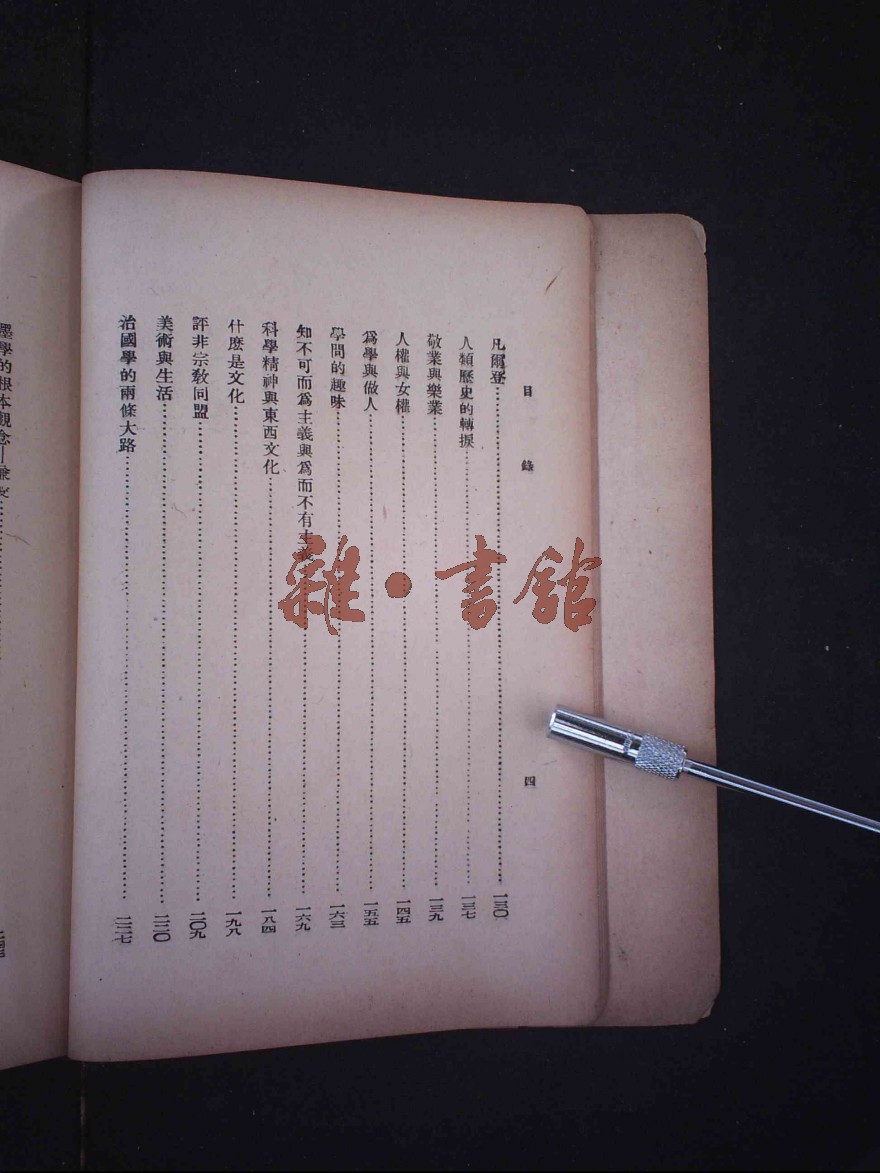 目錄 四
凡爾登……一三〇
人類歷史的轉捩……一三七
敬業與樂業……一三九
人權與女權……一四五
爲學與做人……一五五
學問的趣味……一六三
知不可而爲主義與爲而不有主義……一六九
科學精神與東西文化……一八四
什麽是文化……一九八
評非宗教同盟……二〇九
美術與生活……二二〇
治國學的兩條大路……二二七
墨學的根本觀念—兼
雜·書館